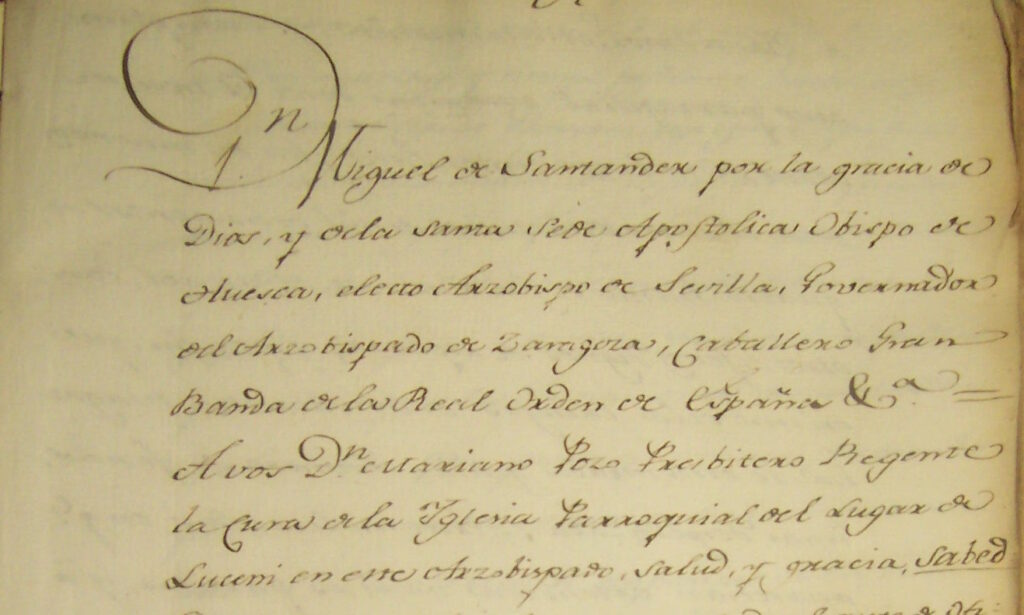 Dn Miguel de Santander por la gracia de
Dios, y de la Santa Sede Apostolica Obispo de
Huesca, electo Arzobispo de Sevilla, Governador
del Arzobispado de Zaragoza, Caballero Gran
Banda de la Real Orden de España &.a =
A vos Dn Mariano Pozo Presbitero Regente
la Cura de la Yglesia Parroquial del Lugar de
Luceni en este Arzobispado, salud, y gracia, sabed